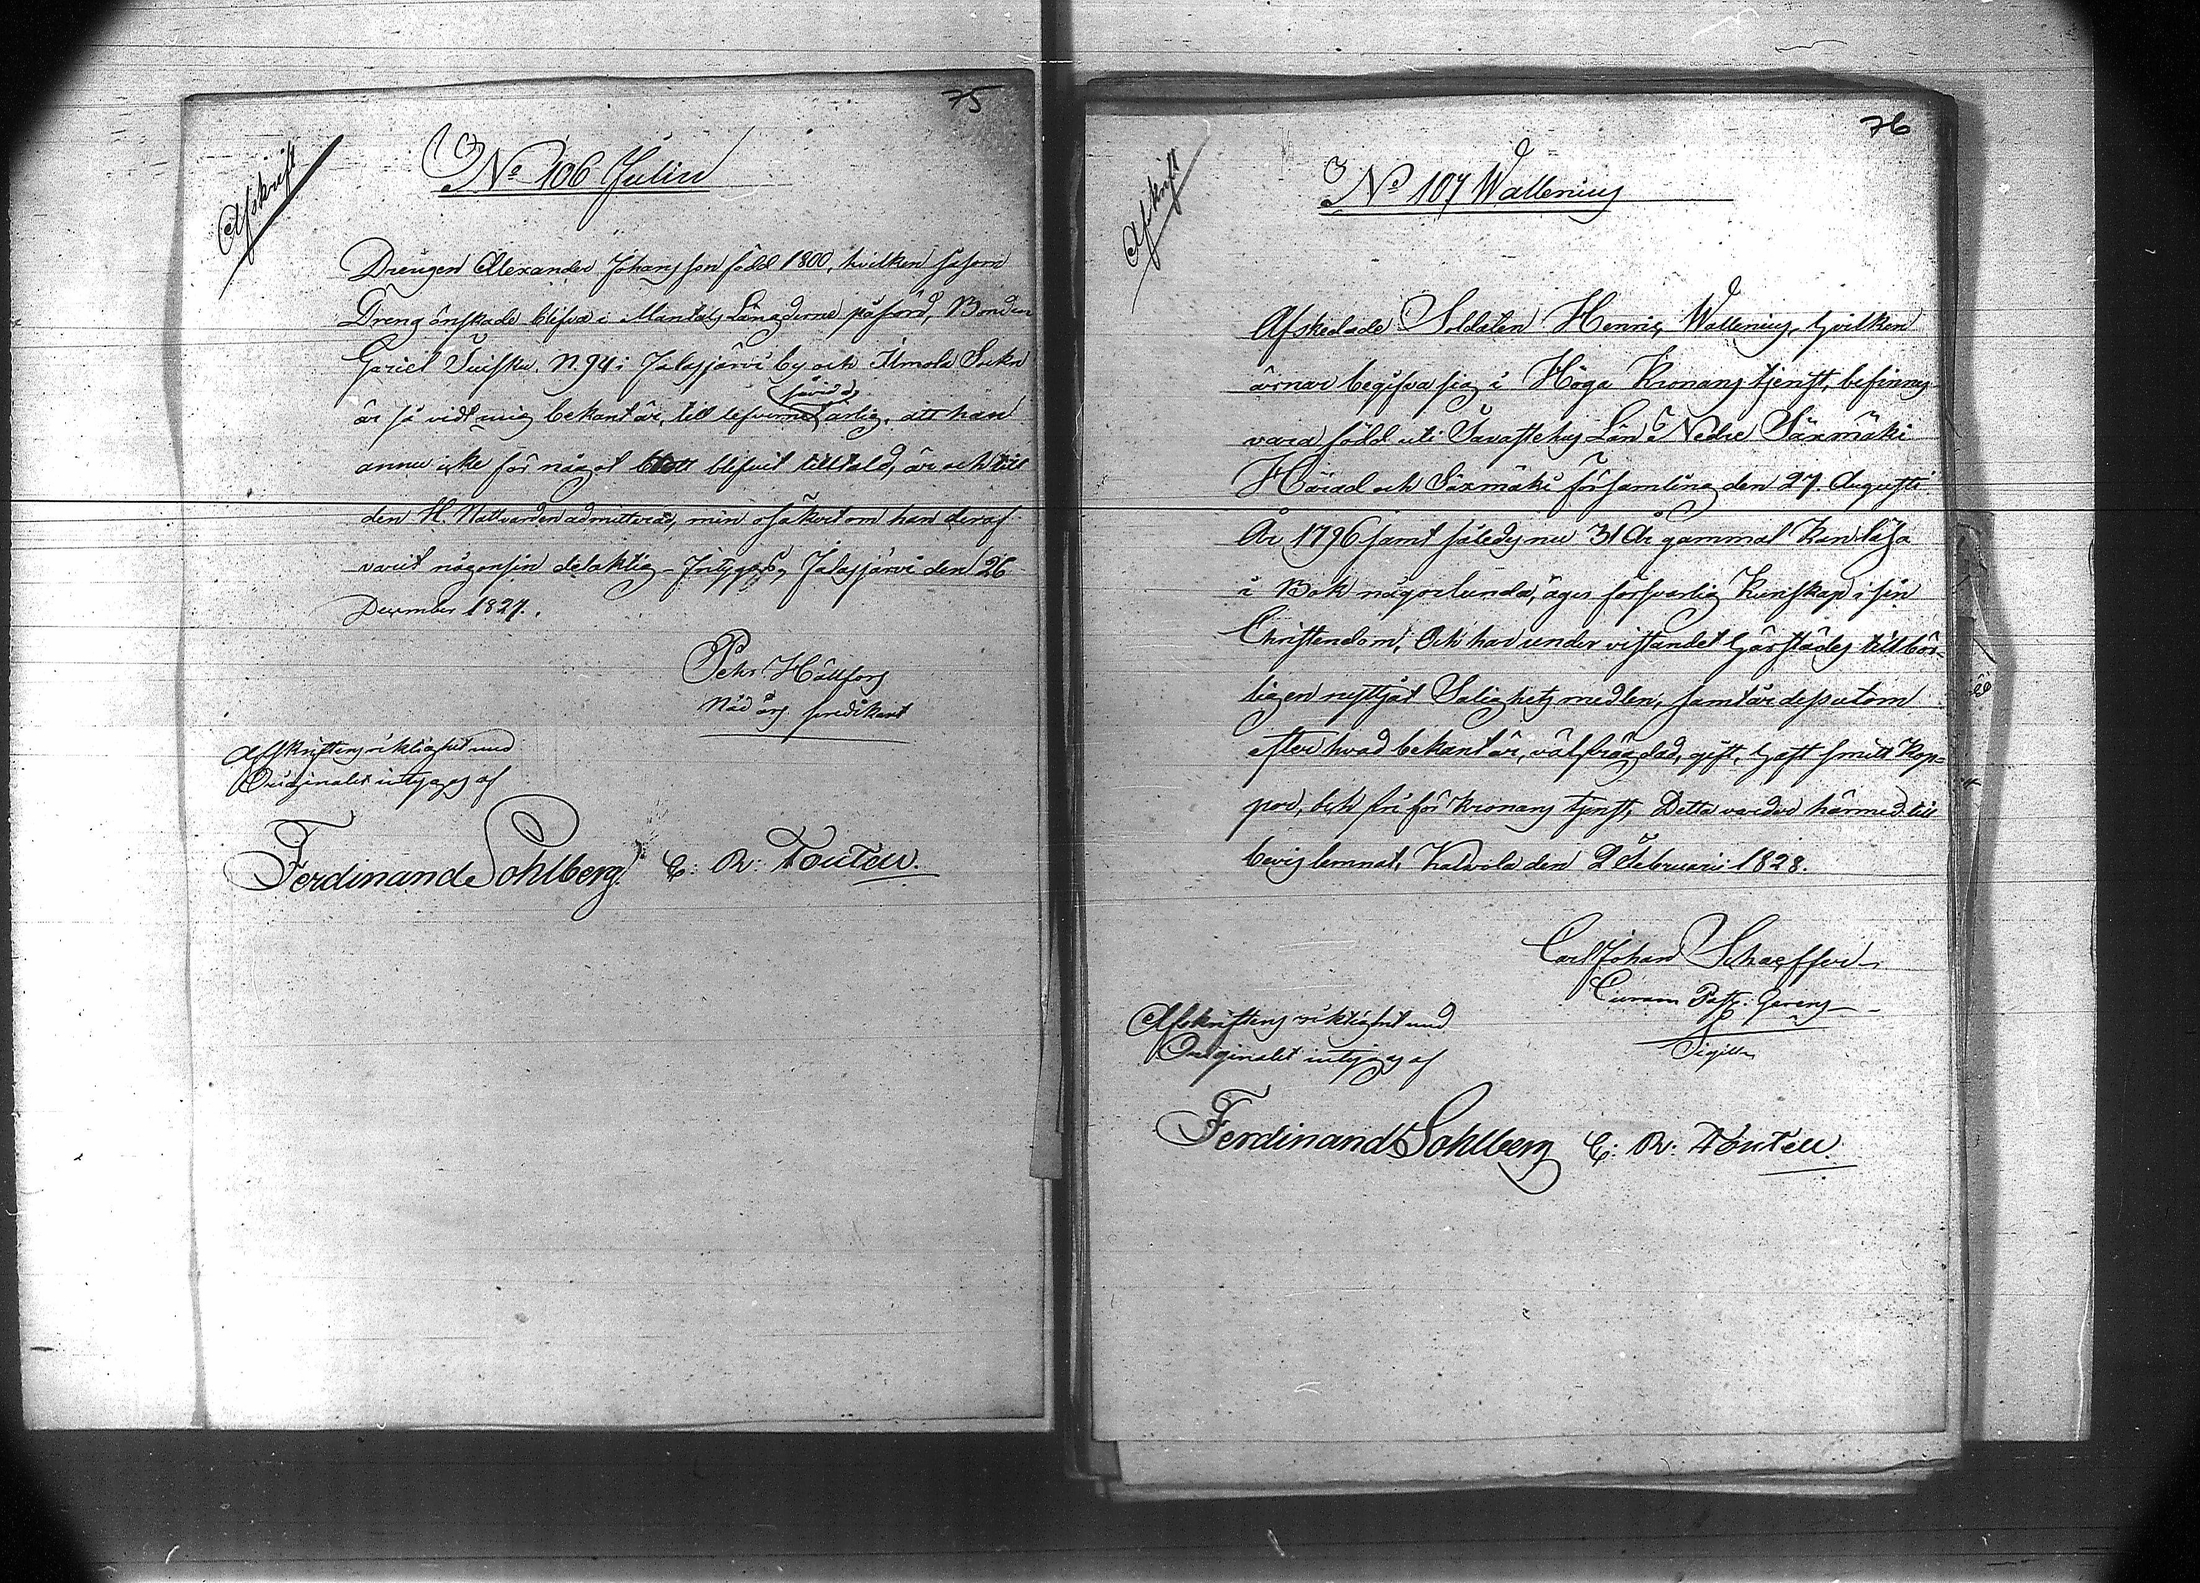 75
Afskrift
No 106 Julin
Drengen Alexander Johansson född 1800, hvilken såsom
Dreng önskade blifva i Mantals Längderne påförd, Bonden
Gariel Tuisku N 94 i Jalasjärvi by och Ilmola Sokn
är så vidt mig bekant är, till lefvernet ärlig, att han
annu icke för något blifvit tilltald, är och till
den H. Nattvarden admitterad, men osäkert om han deraf
varit någonsin delaktig – Intygas, Jalasjärvi den 26
December 1827.
Petr Hällfors
Nåd års predikant
Afskriftens riktighet med
Originalet intygas af
Ferdinand Sohlberg. C: R: Toutell.
76
Afskrift
No 107 Wallenius
Afskedade Soldaten Henric Wallenius, hvilken
ärnar begifva sig i Höga Kronans tjenst, befinnes
vara född uti Tavastehus Län Nedre Säxmäki
Härad och Säxmäki församling den 27 Augusti
År 1796 samt således nu 31 År gammal Kan läsa
i Bok någorlunda, äger försvarlig Kunskap i sin
Christendom, Och har under vistandet härstädes tillbör=
ligen nyttjat Salighets medlen, samt är desputom
efter hvad bekant är, välfrägdad, gift, haft smitt Kop=
por, och fri för Kronans tjenst, Detta varder härmed till
bevis lemnat, Kalvola den 2 Februarii 1828.
Carl Johan Schaeffer
Curam Past: Gerens
Sigill
Afskriftens riktighet med
Originalet intygas af
Ferdinand Sohlberg C: R: Toutell.